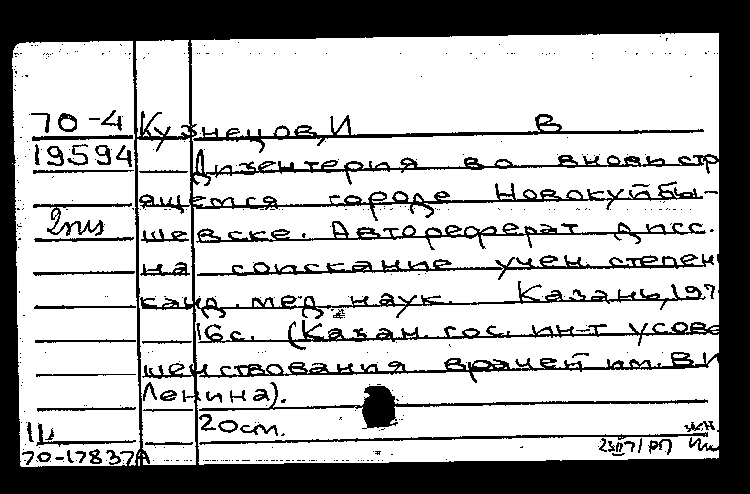 70-4 Кузнецов, И В
19594 Дизентерия во вновь стр
ящемся городе Новокуйбы-
2 пив шевске. Автореферат дисс.
на соискание учен. степен
канд. мед. наук. Казань, 197
16с. (Казан. гос. ин-т усове
шенствования врачей им. В И
Ленина).
20 см.
70-17837А